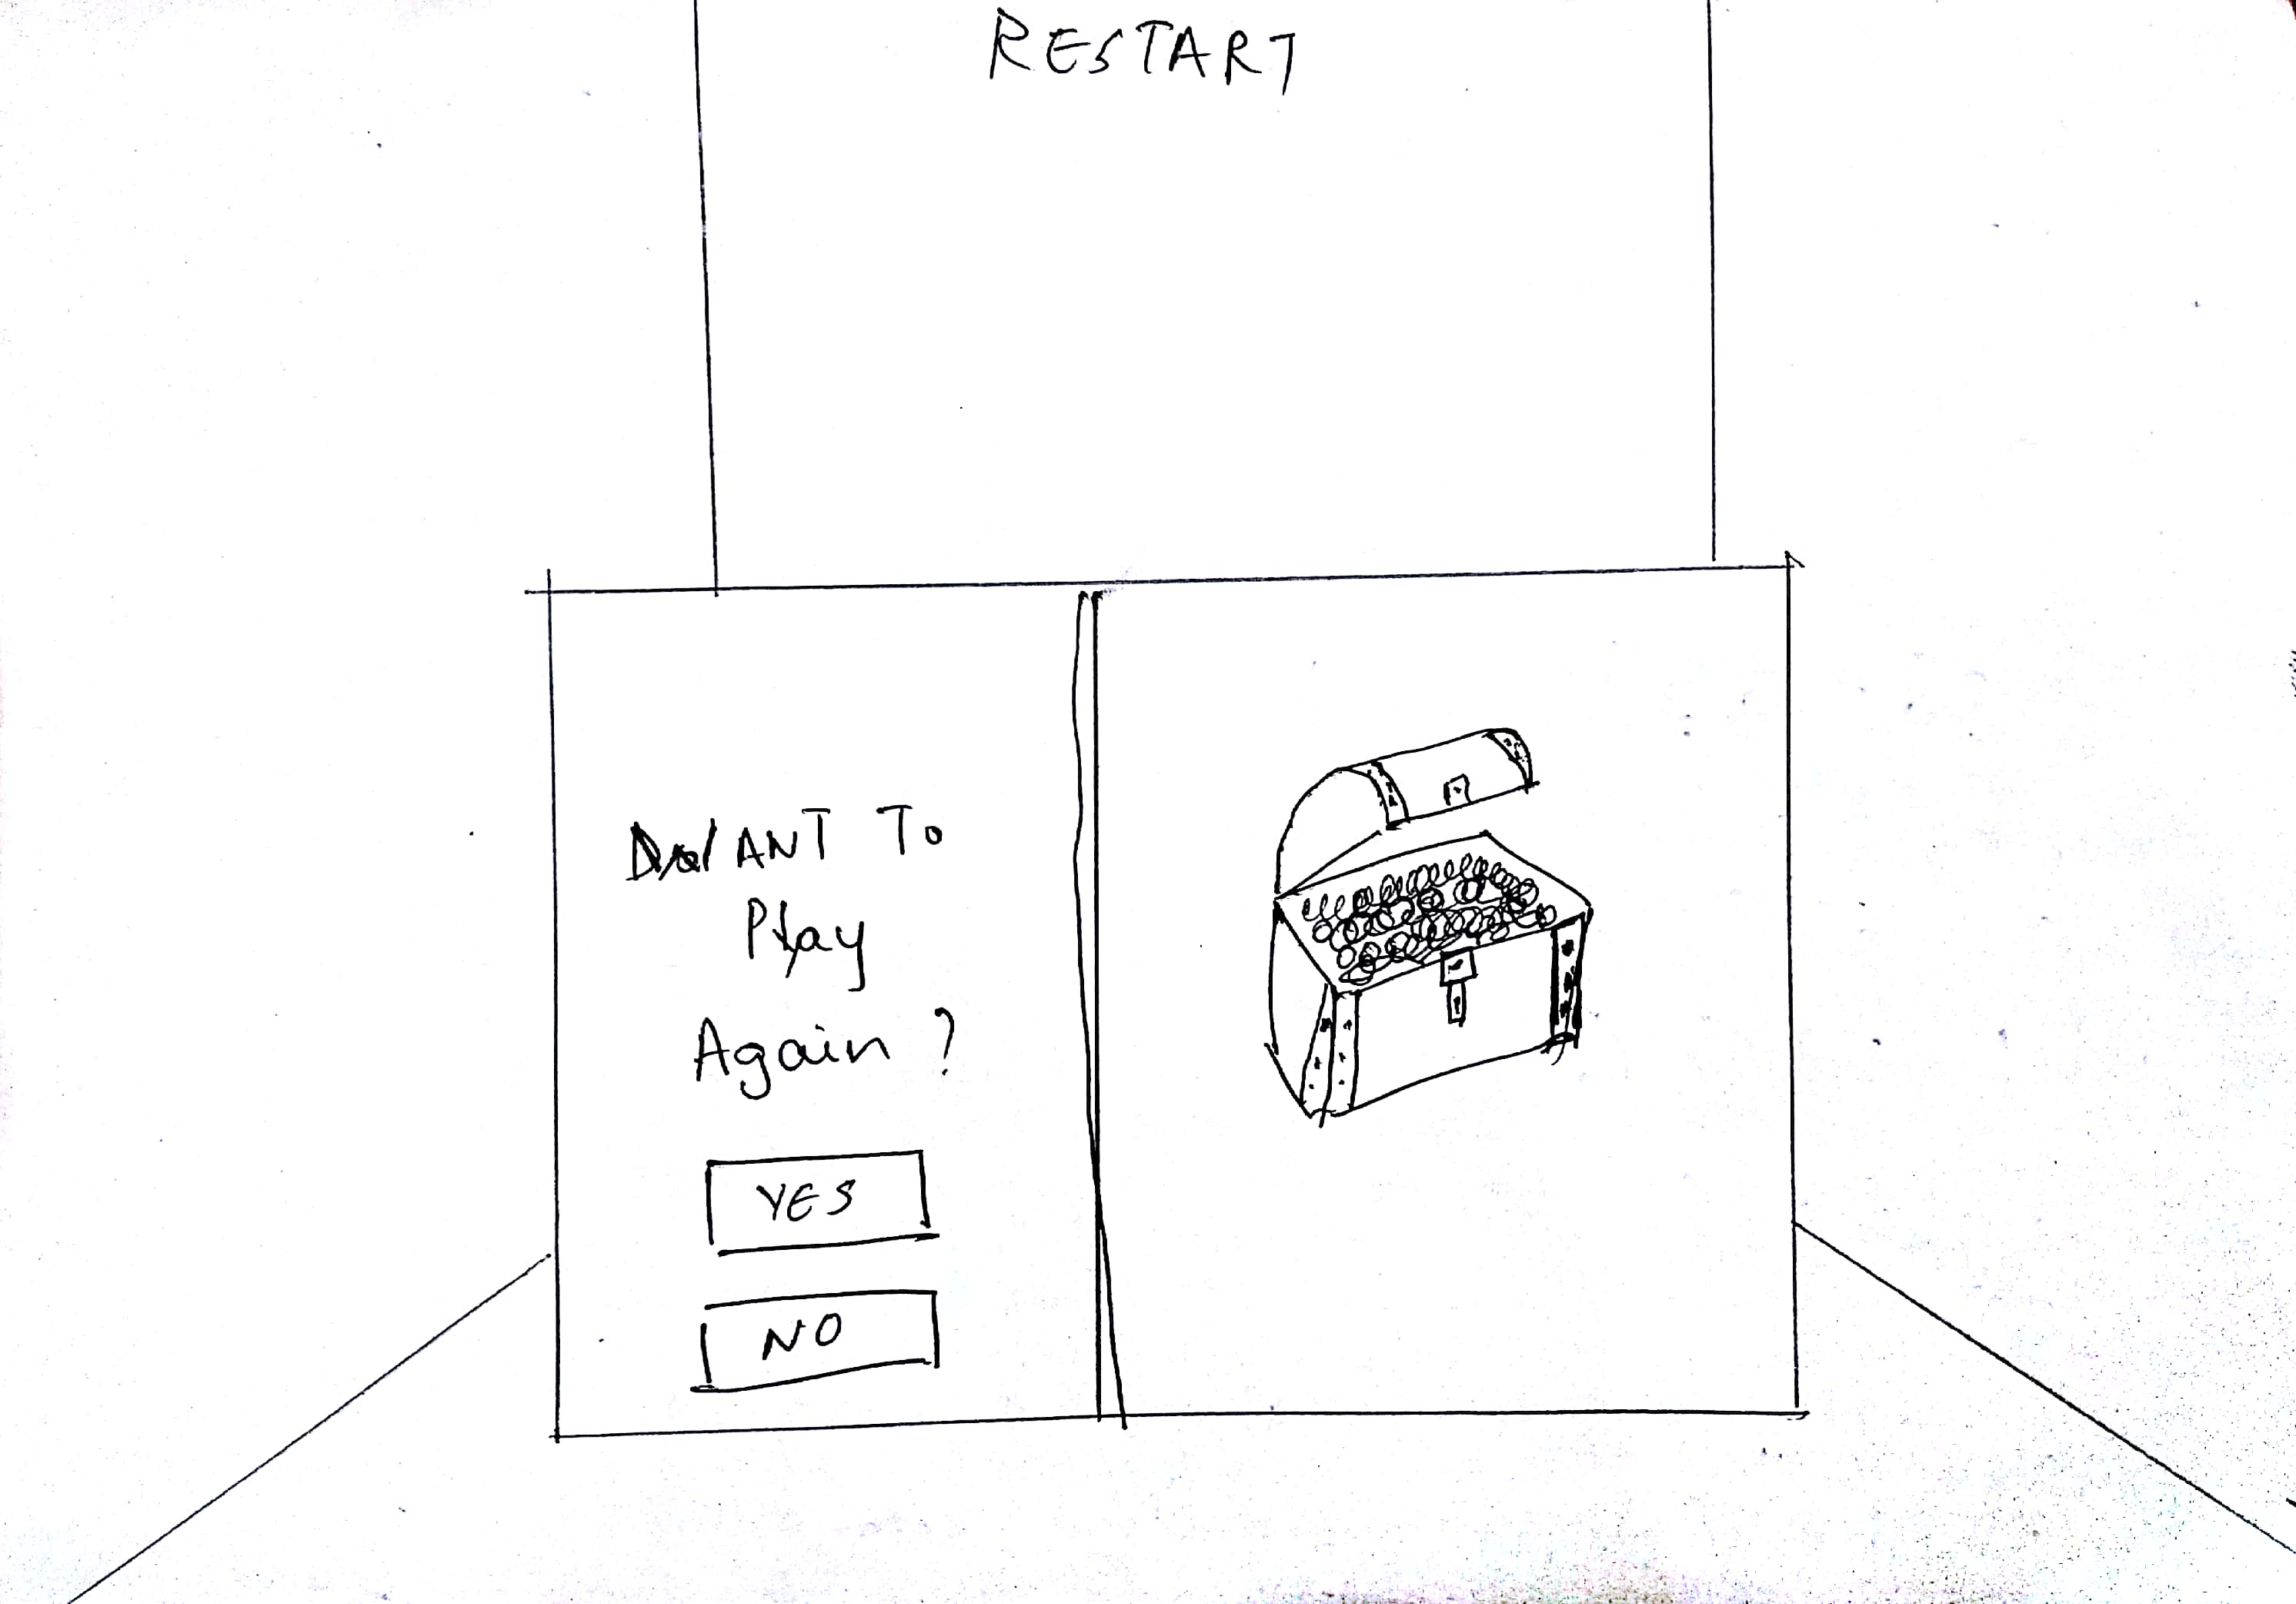 RESTART
WANT To
Play
Again ?
YES
NO